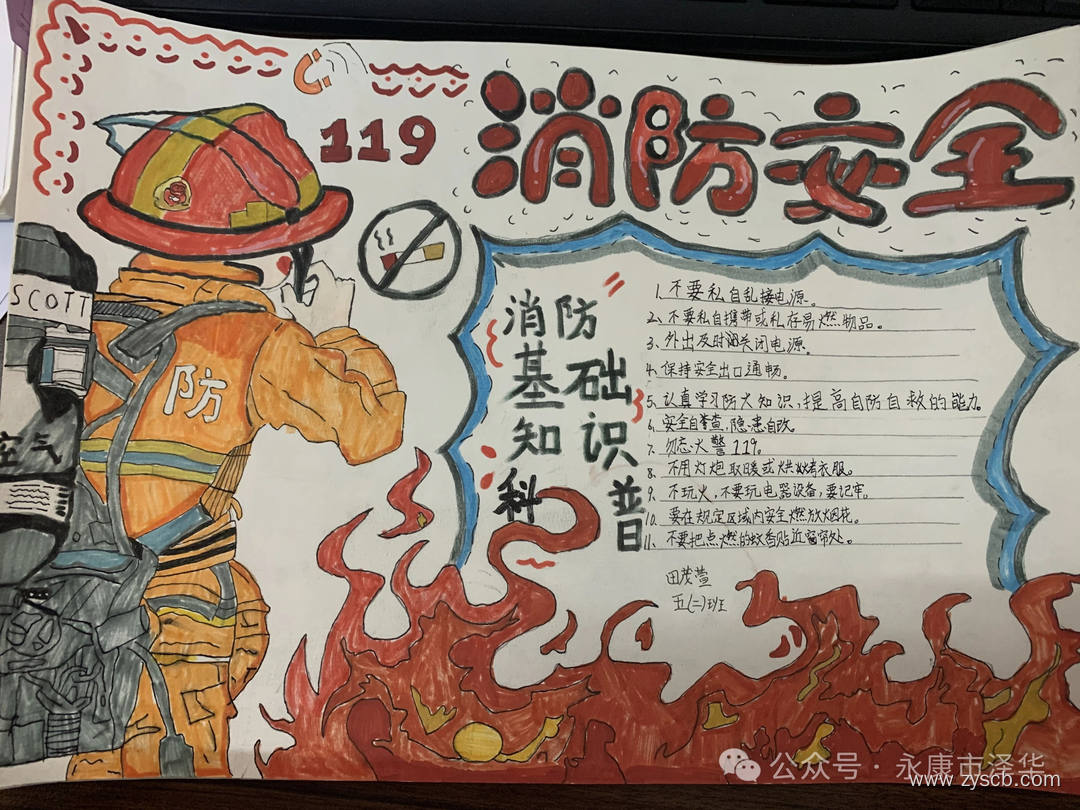 119
消防安全
SCOTT
防
空气
消防
基础
知识
科普
1、不要私自乱接电源。
2、不要私自携带或私存易燃物品。
3、外出及时关闭电源。
4、保持安全出口通畅。
5、认真学习防火知识,提高自防自救的能力。
6、安全自查,隐患自改。
7、勿忘火警119。
8、不用灯炮取暖或烘烤衣服。
9、不玩火,不要玩电器设备,要记牢。
10、要在规定区域内安全燃放烟花。
11、不要把点燃的蚊香贴近窗帘处。
田茂萱
五(二)班
公众号·永康市泽华
www.zyscb.com